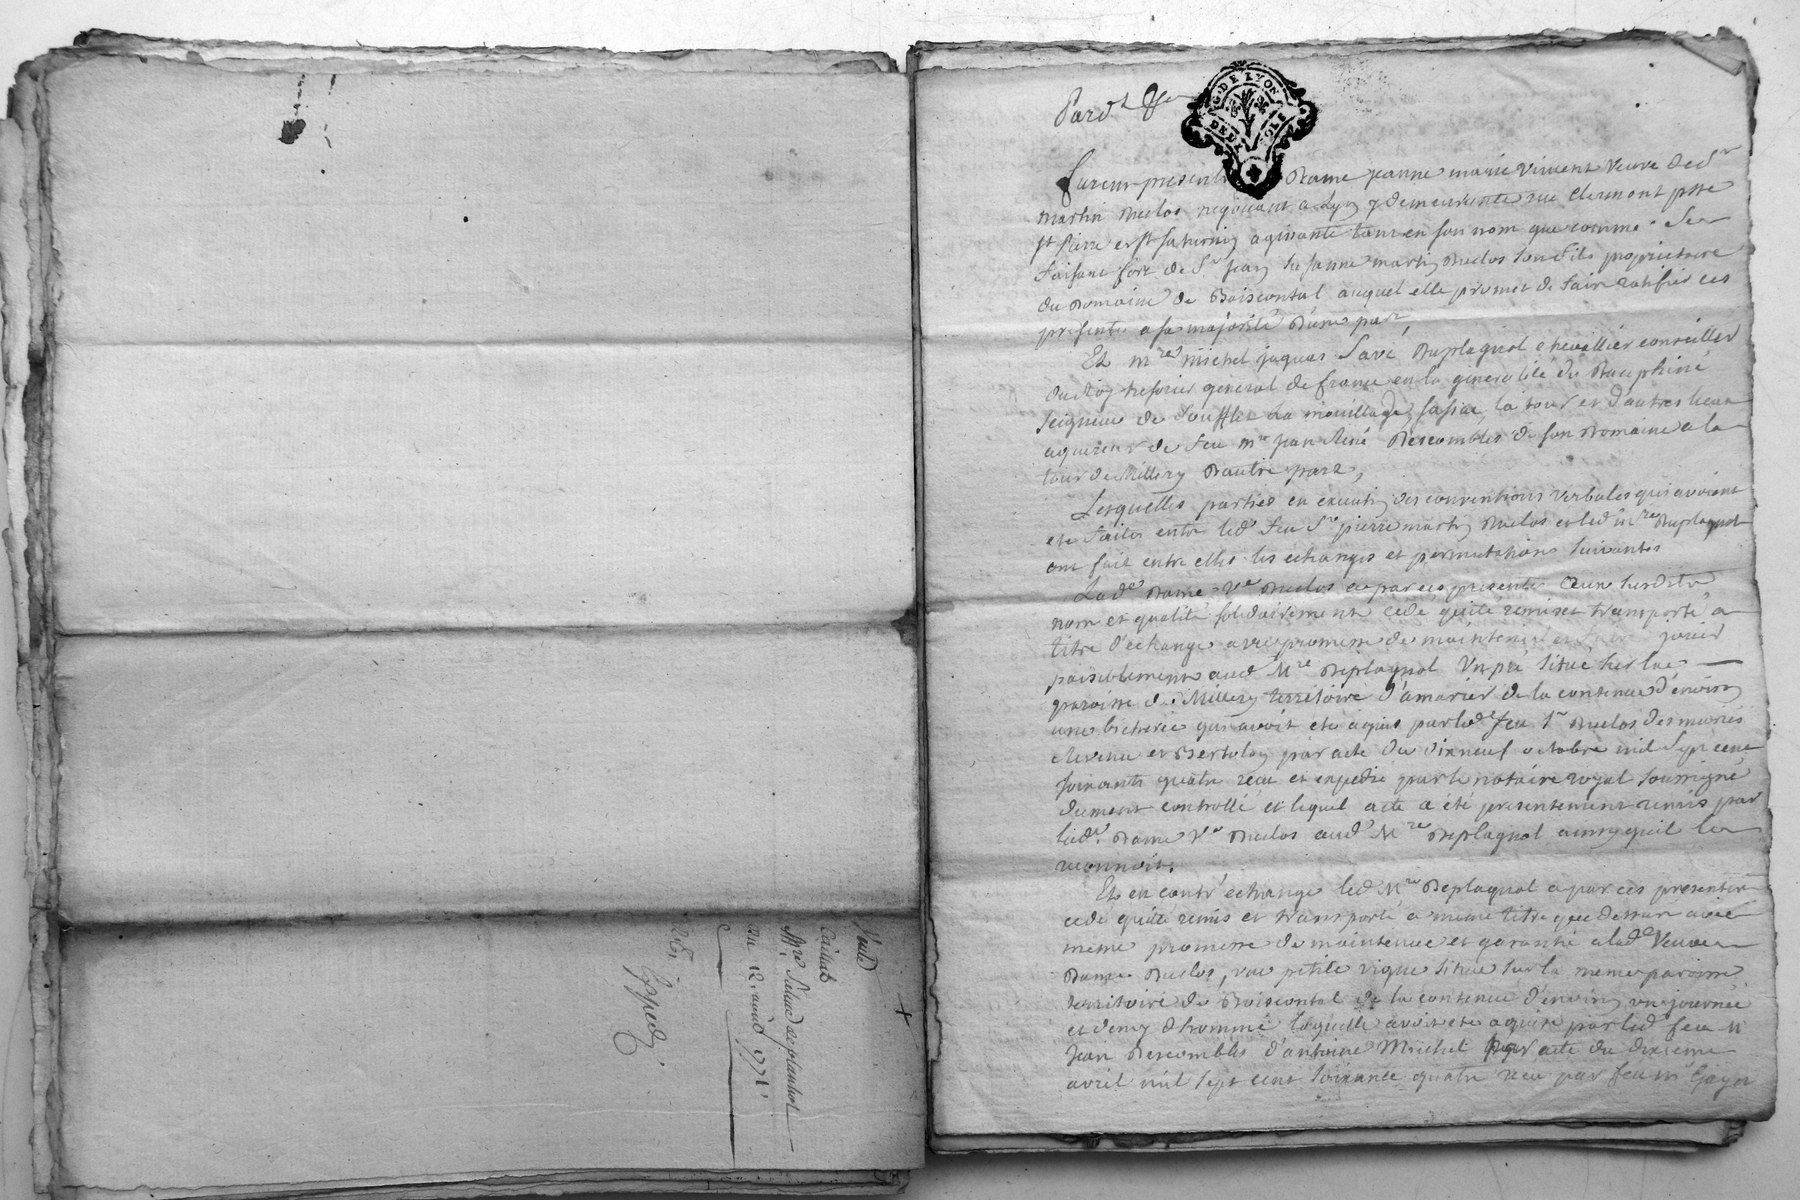 Vente
Mre
du 12. août 1771
Exped.
G. DE LYON
Pard.t
Furent presents Dame jeanne marie Vincent Veuve de Sr
martin Duclos negotiant a Lyon y demeurante rue Clermont psse
St Pierre et St Saturnin agissante tant en son nom que comme se
faisant fort de Sr Jean martin Duclos son fils proprietaire
du Domaine de Boiscontal auquel elle promet de faire ratifier ces
presentes a sa majorité D'une part,
Et mre michel jaques Savé Deplagnol chevallier conseiller
du Roy tresorier general de france en la generalité du Dauphiné
seigneur de la mouillade la tour et d'autres lieux
aquereur de feu mre jean Descombles de son Domaine a la
tour de Millery D'autre part,
Lesquelles parties en execution des conventions verbales qui avoient
ete faites entre led. feu Sr pierre martin Duclos et led. mre Deplagnol
ont fait entre elles les echanges et permutations suivantes
Lad.e Dame Ve Duclos a par ces presentes
nom et qualité solidairement cedé quité remis et transporté a
titre d'echange avec promesse de maintenir et faire jouir
paisiblement aud. Mre Deplagnol Un pré situé sur la
paroisse de Millery territoire d'amarier de la contenue d'environ
une bicherée qui avoit ete aquis par led. feu Sr Duclos des mariés
et Bertolon par acte du dixneuf octobre mil sept cent
soixante quatre recu et expedié par le notaire royal soussigné
dument controllé et lequel acte a été presentement remis par
lad.e Dame Ve Duclos aud. Mre Deplagnol ainsy quil le
reconnoit.
Et en contr'echange led. Mre Deplagnol a par ces presentes
cedé quité remis et transporté a meme titre que dessus avec
meme promesse de maintenue et garantie a lad.e Veuve
Dame Duclos, une petite vigne situee sur la meme paroisse
territoire de Boiscontal de la contenue d'environ une journée
et demy d'homme laquelle avoit ete aquise par led. feu M
Jean Descombles d'antoine Michel par acte du dixieme
avril mil sept cent soixante quatre recu par feu Mre Gayet